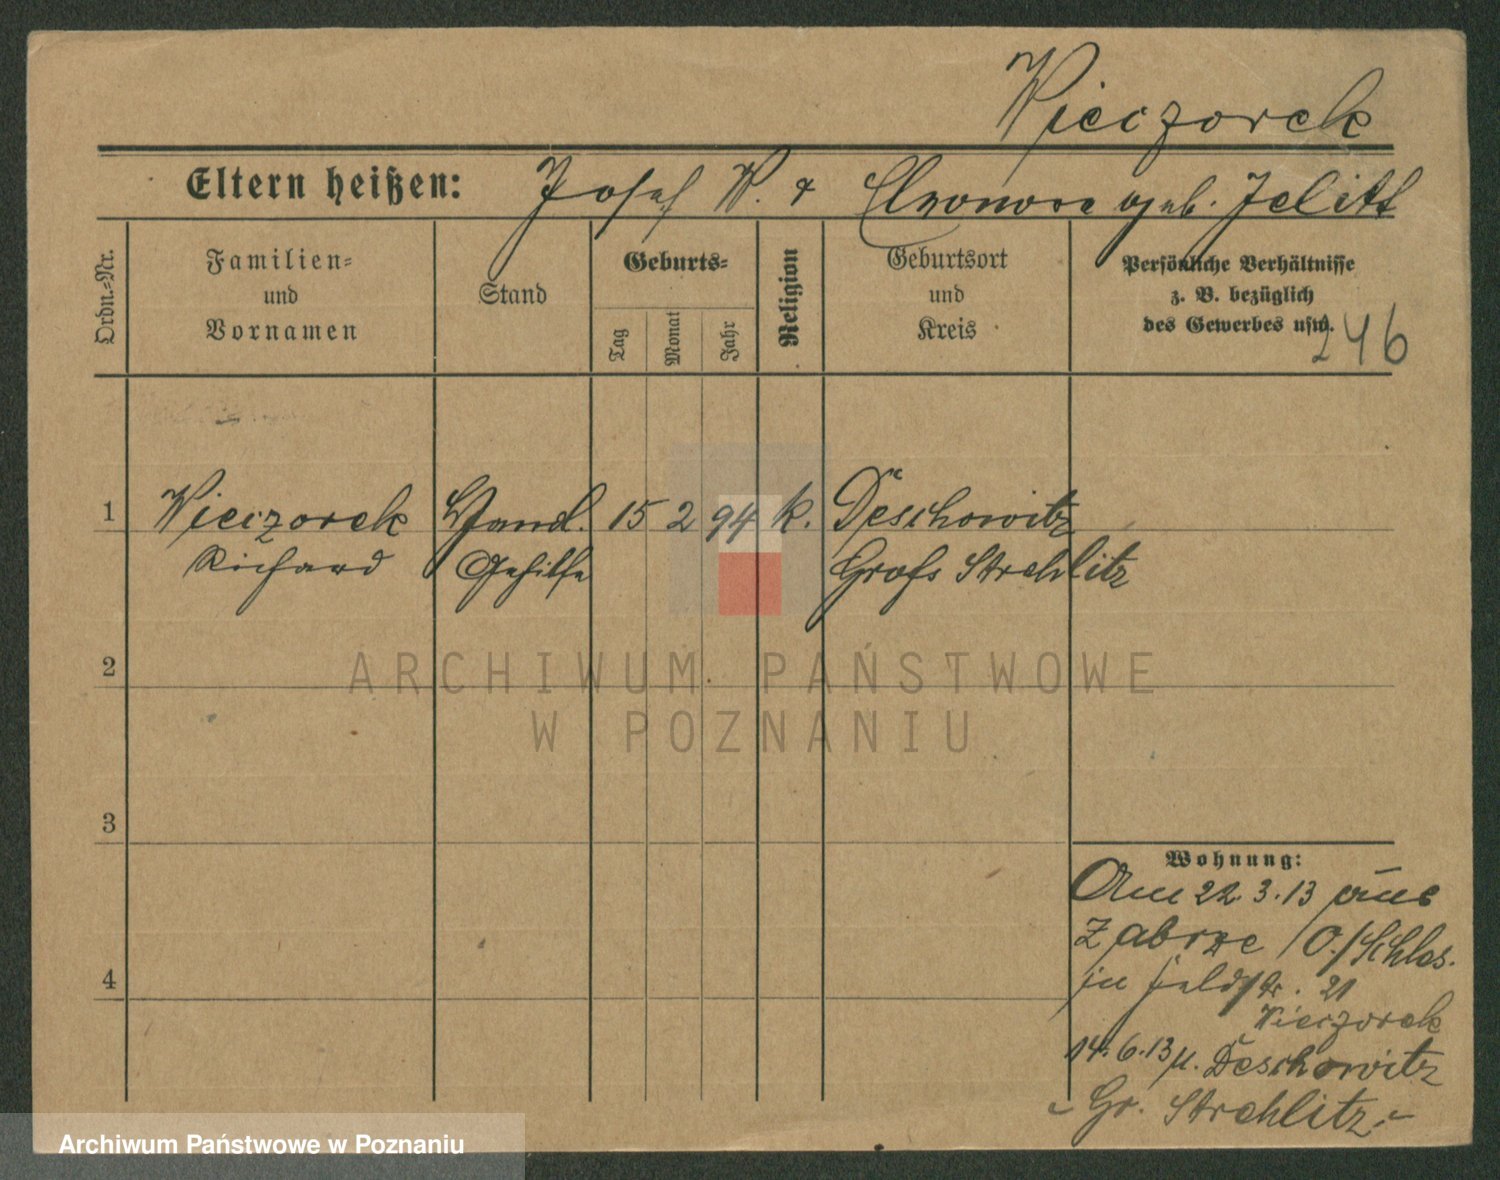 Wieczorek
Eltern heißen: Josef W. & Eleonore geb. Jelitt
Ordn.-Nr.
Familien-
und
Vornamen
Stand
Geburts-
Tag
Monat
Jahr
Religion
Geburtsort
und
Kreis
Persönliche Verhältnisse
z. B. bezüglich
des Gewerbes usw.
246
1 Wieczorek Handl. 15 2 94 k. Deschowitz
Richard Gehilfe Groß Strehlitz
2
ARCHIWUM PAŃSTWOWE
W POZNANIU
3
Wohnung:
Am 22.3.13 aus
Zabrze /O./Schles.
in Feldstr. 21
Wieczorek
14.6.13 n. Deschowitz
Gr. Strehlitz
4
Archiwum Państwowe w Poznaniu